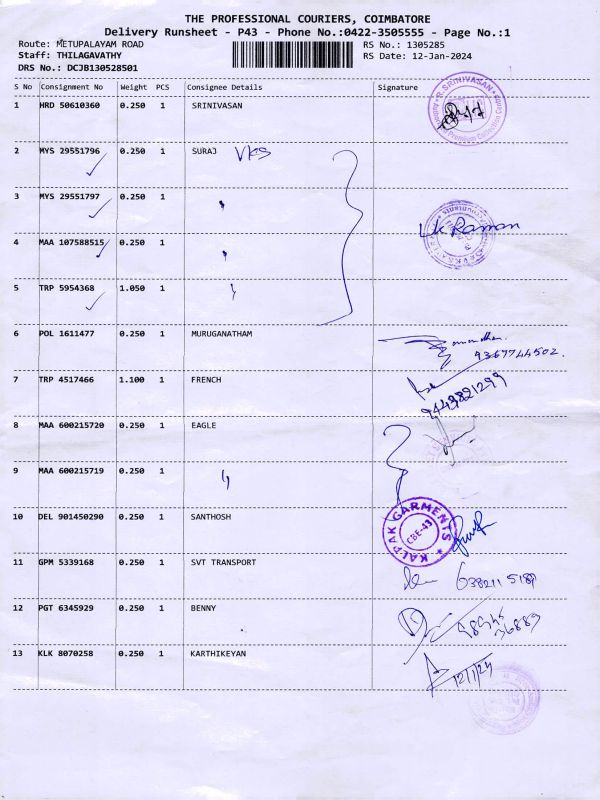 THE PROFESSIONAL COURIERS, COIMBATORE
Delivery Runsheet - P43 - Phone No.:0422-3505555 - Page No.:1
Route: METUPALAYAM ROAD RS No.: 1305285
Staff: THILAGAVATHY RS Date: 12-Jan-2024
DRS No.: DCJB130528501
S No Consignment No Weight PCS Consignee Details Signature
1 HRD 50610360 0.250 1 SRINIVASAN R.SRINIVASAN
2 MYS 29551796 0.250 1 SURAJ VKS
3 MYS 29551797 0.250 1 "
4 MAA 107588515 0.250 1 " Raman
5 TRP 5954368 1.050 1 "
6 POL 1611477 0.250 1 MURUGANATHAM
9367744502.
7 TRP 4517466 1.100 1 FRENCH
9443821299
8 MAA 600215720 0.250 1 EAGLE
9 MAA 600215719 0.250 1 "
10 DEL 901450290 0.250 1 SANTHOSH KALPAK GARMENTS CBE-43
11 GPM 5339168 0.250 1 SVT TRANSPORT
12 PGT 6345929 0.250 1 BENNY
36889
13 KLK 8070258 0.250 1 KARTHIKEYAN
12/1/24